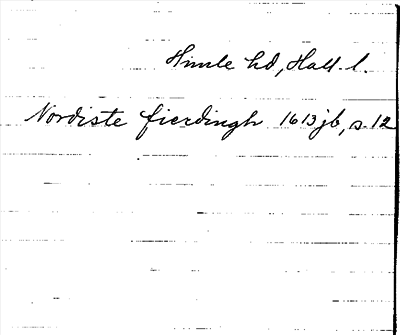 Himle hd, Hall. l.
Nordiste fierdingh 1613 jb, s. 12